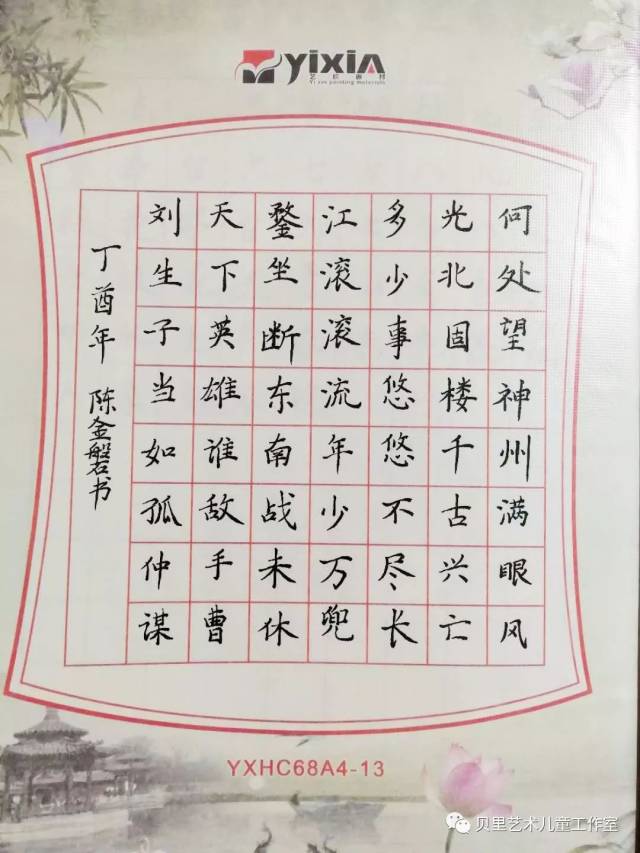 YiXiN
Yi xin painting materials
何处望神州满眼风
光北固楼千古兴亡
多少事悠悠不尽长
江滚滚流年少万兜
鍪坐断东南战未休
天下英雄谁敌手曹
刘生子当如孤仲谋
丁酉年 陈金磐书
YXHC68A4-13
贝里艺术儿童工作室